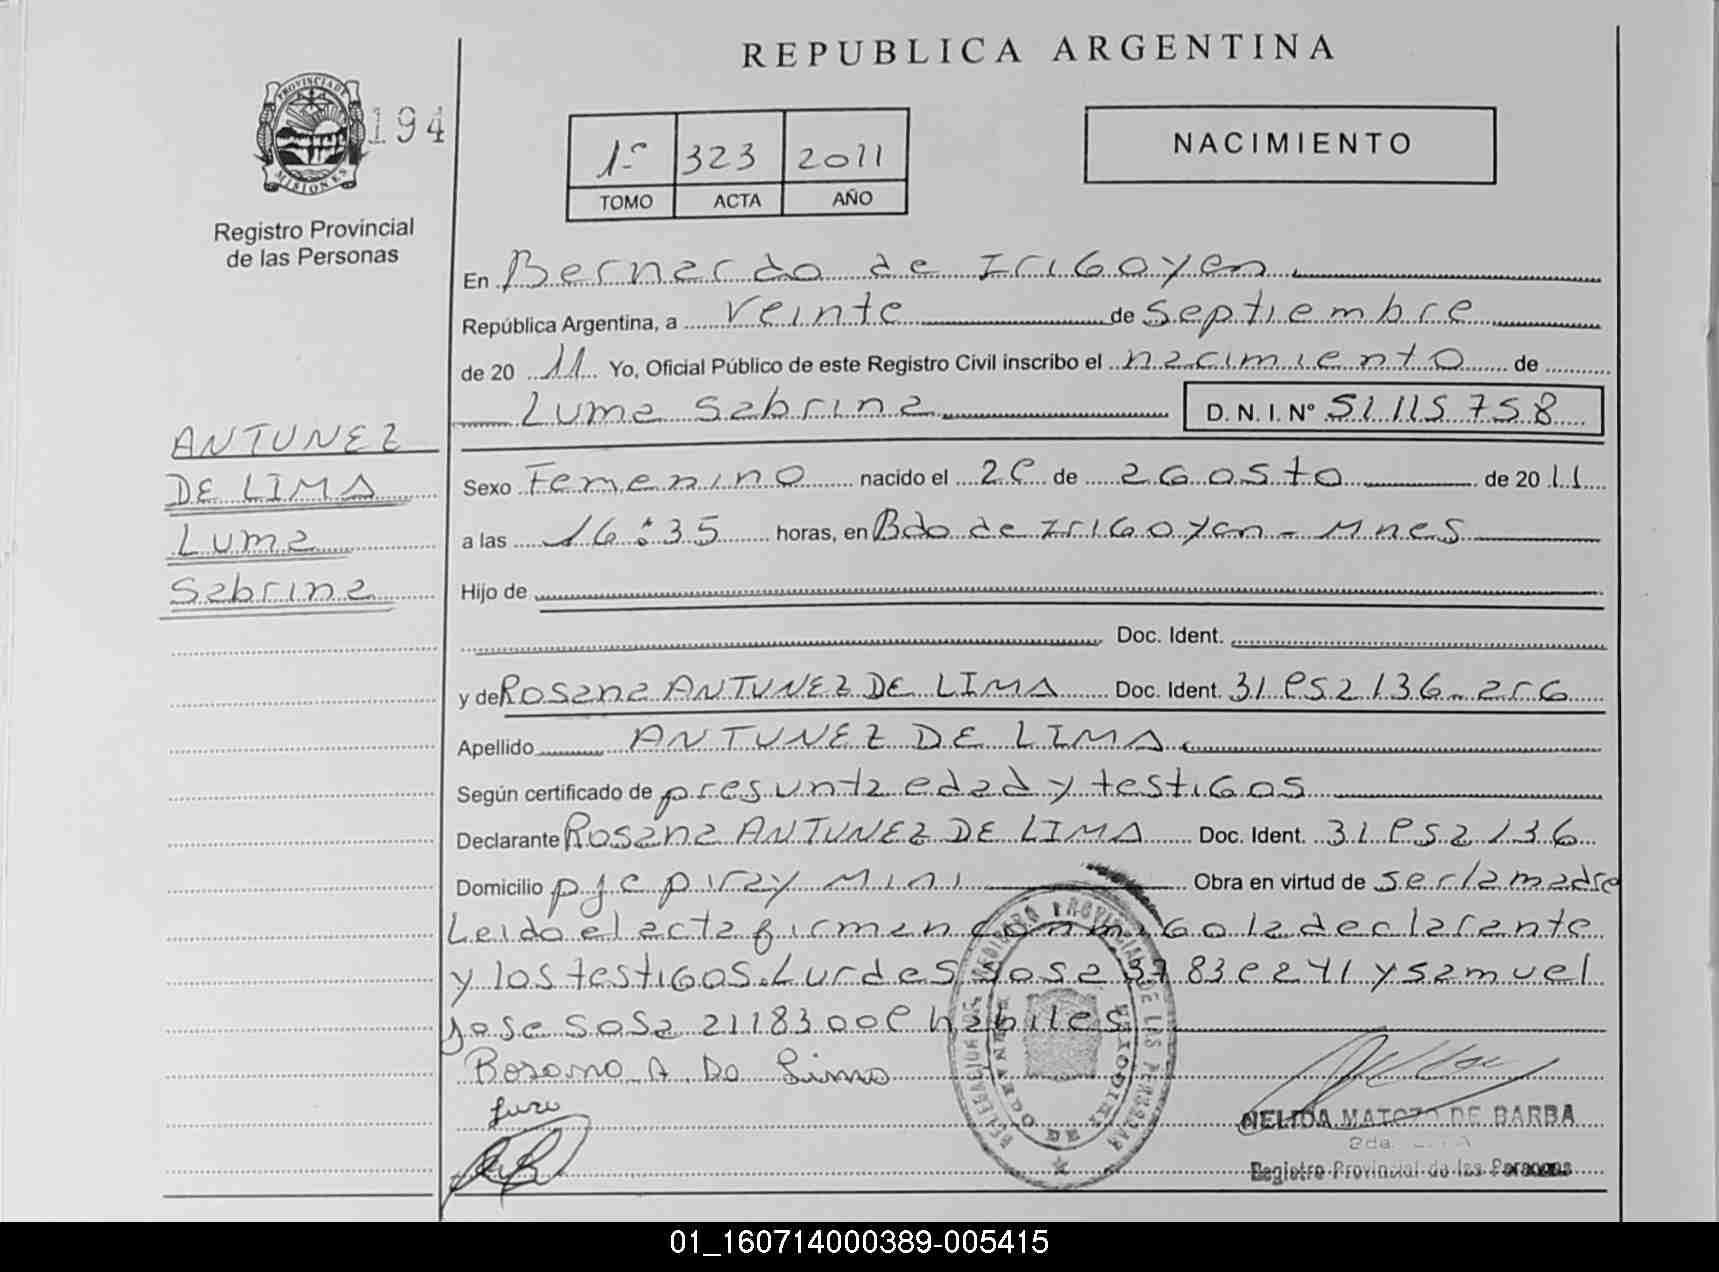 REPUBLICA ARGENTINA
PROVINCIA DE MISIONES
194
Registro Provincial
de las Personas
1º 323 2011
TOMO ACTA AÑO
NACIMIENTO
En Bernardo de Irigoyen
República Argentina, a veinte de septiembre
de 2011 Yo, Oficial Público de este Registro Civil inscribo el nacimiento de
Luma Sabrina D. N. I. Nº 51.115.758
ANTUNEZ
DE LIMA
Luma
Sabrina
Sexo Femenino nacido el de agosto de 2011
a las 16:35 horas, en Bdo de Irigoyen - Mnes
Hijo de
Doc. Ident.
y de Rosana ANTUNEZ DE LIMA Doc. Ident.
Apellido ANTUNEZ DE LIMA
Según certificado de presunta edad y testigos
Declarante Rosana ANTUNEZ DE LIMA Doc. Ident.
Domicilio pje piray mini Obra en virtud de ser la madre
Leido el acta firman conmigo la declarante
y los testigos. Lurdes y Samuel
Jose Sosa habiles
NELIDA MATOZO DE BARBA
Registro Provincial de las Personas
01_160714000389-005415